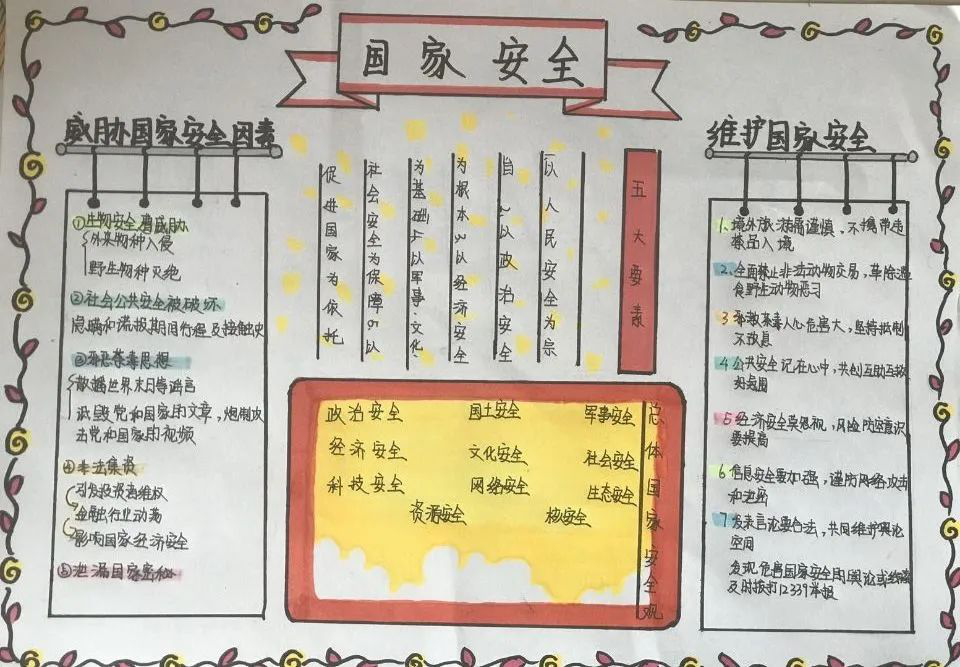 国家安全
威胁国家安全因素
①生物安全遭威胁
外来物种入侵
野生物种灭绝
②社会公共安全被破坏
隐瞒和谎报期间行程及接触史
③邪恶荼毒思想
散播世界末日等谣言
诋毁党和国家的文章，炮制攻
击党和国家的视频
④非法集资
引发投资者维权
金融行业动荡
影响国家经济安全
⑤泄漏国家密秘
五大要素
以人民安全为宗
旨 2以政治安全
为根本 3以经济安全
为基础 4以军事·文化·
社会安全为保障 5以
促进国家为依托
总体国家安全观
政治安全 国土安全 军事安全
经济安全 文化安全 社会安全
科技安全 网络安全 生态安全
资源安全 核安全
维护国家安全
1、境外旅游需谨慎，不携带违
禁品入境
2、全面禁止非法动物交易，革除滥
食野生动物恶习
3 邪教荼毒人心危害大，坚持抵制
不放息
4 公共安全记在心中，共创互助互救
好氛围
5 经济安全莫忽视，风险防控意识
要提高
6 信息安全要加强，谨防网络攻击
和泄密
7 发表言论要合法，共同维护舆论
空间
发现危害国家安全的舆论或线索
及时拨打12339举报